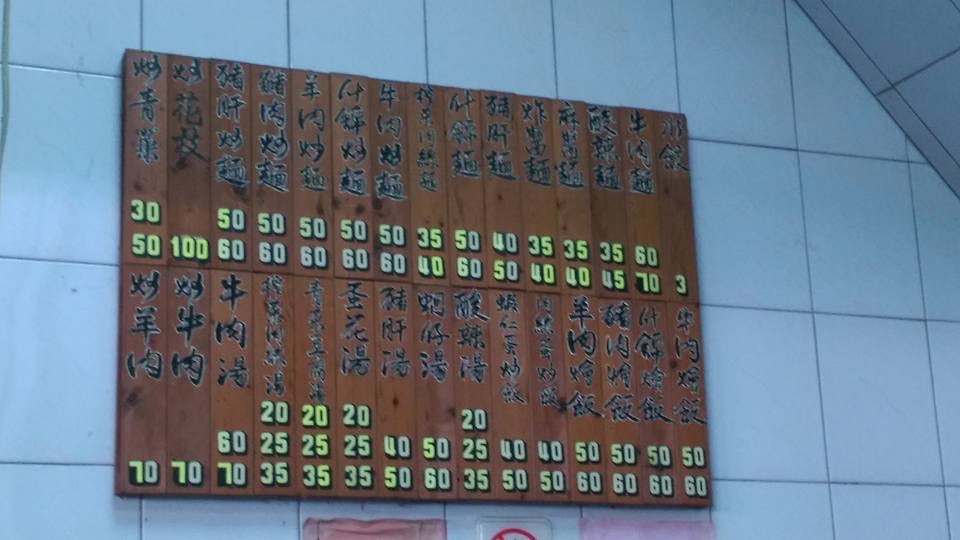 水餃 3
牛肉麵 60 70
酸辣麵 35 45
麻醬麵 35 40
炸醬麵 35 40
豬肝麵 40 50
什錦麵 50 60
榨菜肉絲麵 35 40
牛肉炒麵 50 60
什錦炒麵 50 60
羊肉炒麵 50 60
豬肉炒麵 50 60
豬肝炒麵 50 60
炒花枝 100
炒青菜 30 50
牛肉燴飯 50 60
什錦燴飯 50 60
豬肉燴飯 50 60
羊肉燴飯 50 60
肉絲蛋炒飯 40 50
蝦仁蛋炒飯 40 50
酸辣湯 20 25 35
蚵仔湯 50 60
豬肝湯 40 50
蛋花湯 20 25 35
青菜豆腐湯 20 25 35
榨菜肉絲湯 20 25 35
牛肉湯 60 70
炒牛肉 70
炒羊肉 70